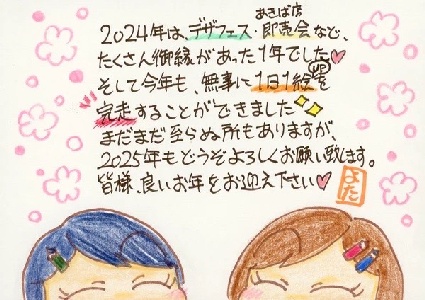 あきば店
2024年は、デザフェス・即売会など、
たくさん御縁があった1年でした♥
そして今年も、無事に1日1絵UPを
完走することができました
まだまだ至らぬ所もありますが、
2025年もどうぞよろしくお願い致します。
皆様、良いお年をお迎え下さい♥
よた